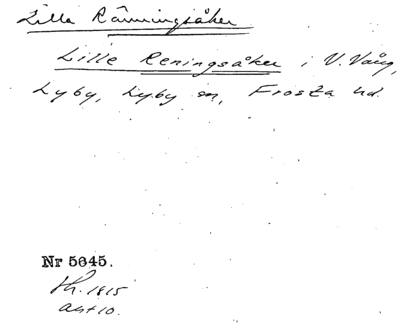 Lilla Ränningsåker
Lille Reningsåker i V. Vång,
Lyby, Lyby sn, Frosta hd.
Nr 5645.
Sk. 1815
akt 10.